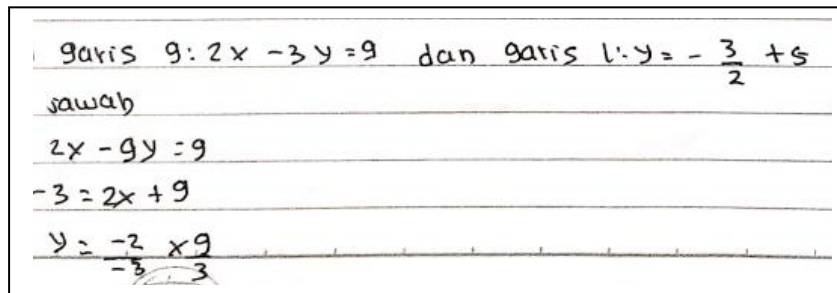 garis g: 2x - 3y = 9 dan garis l: y = - 3/2 + 5
Jawab
2x - 9y = 9
-3 = 2x + 9
y = -2/-3 x 9/3